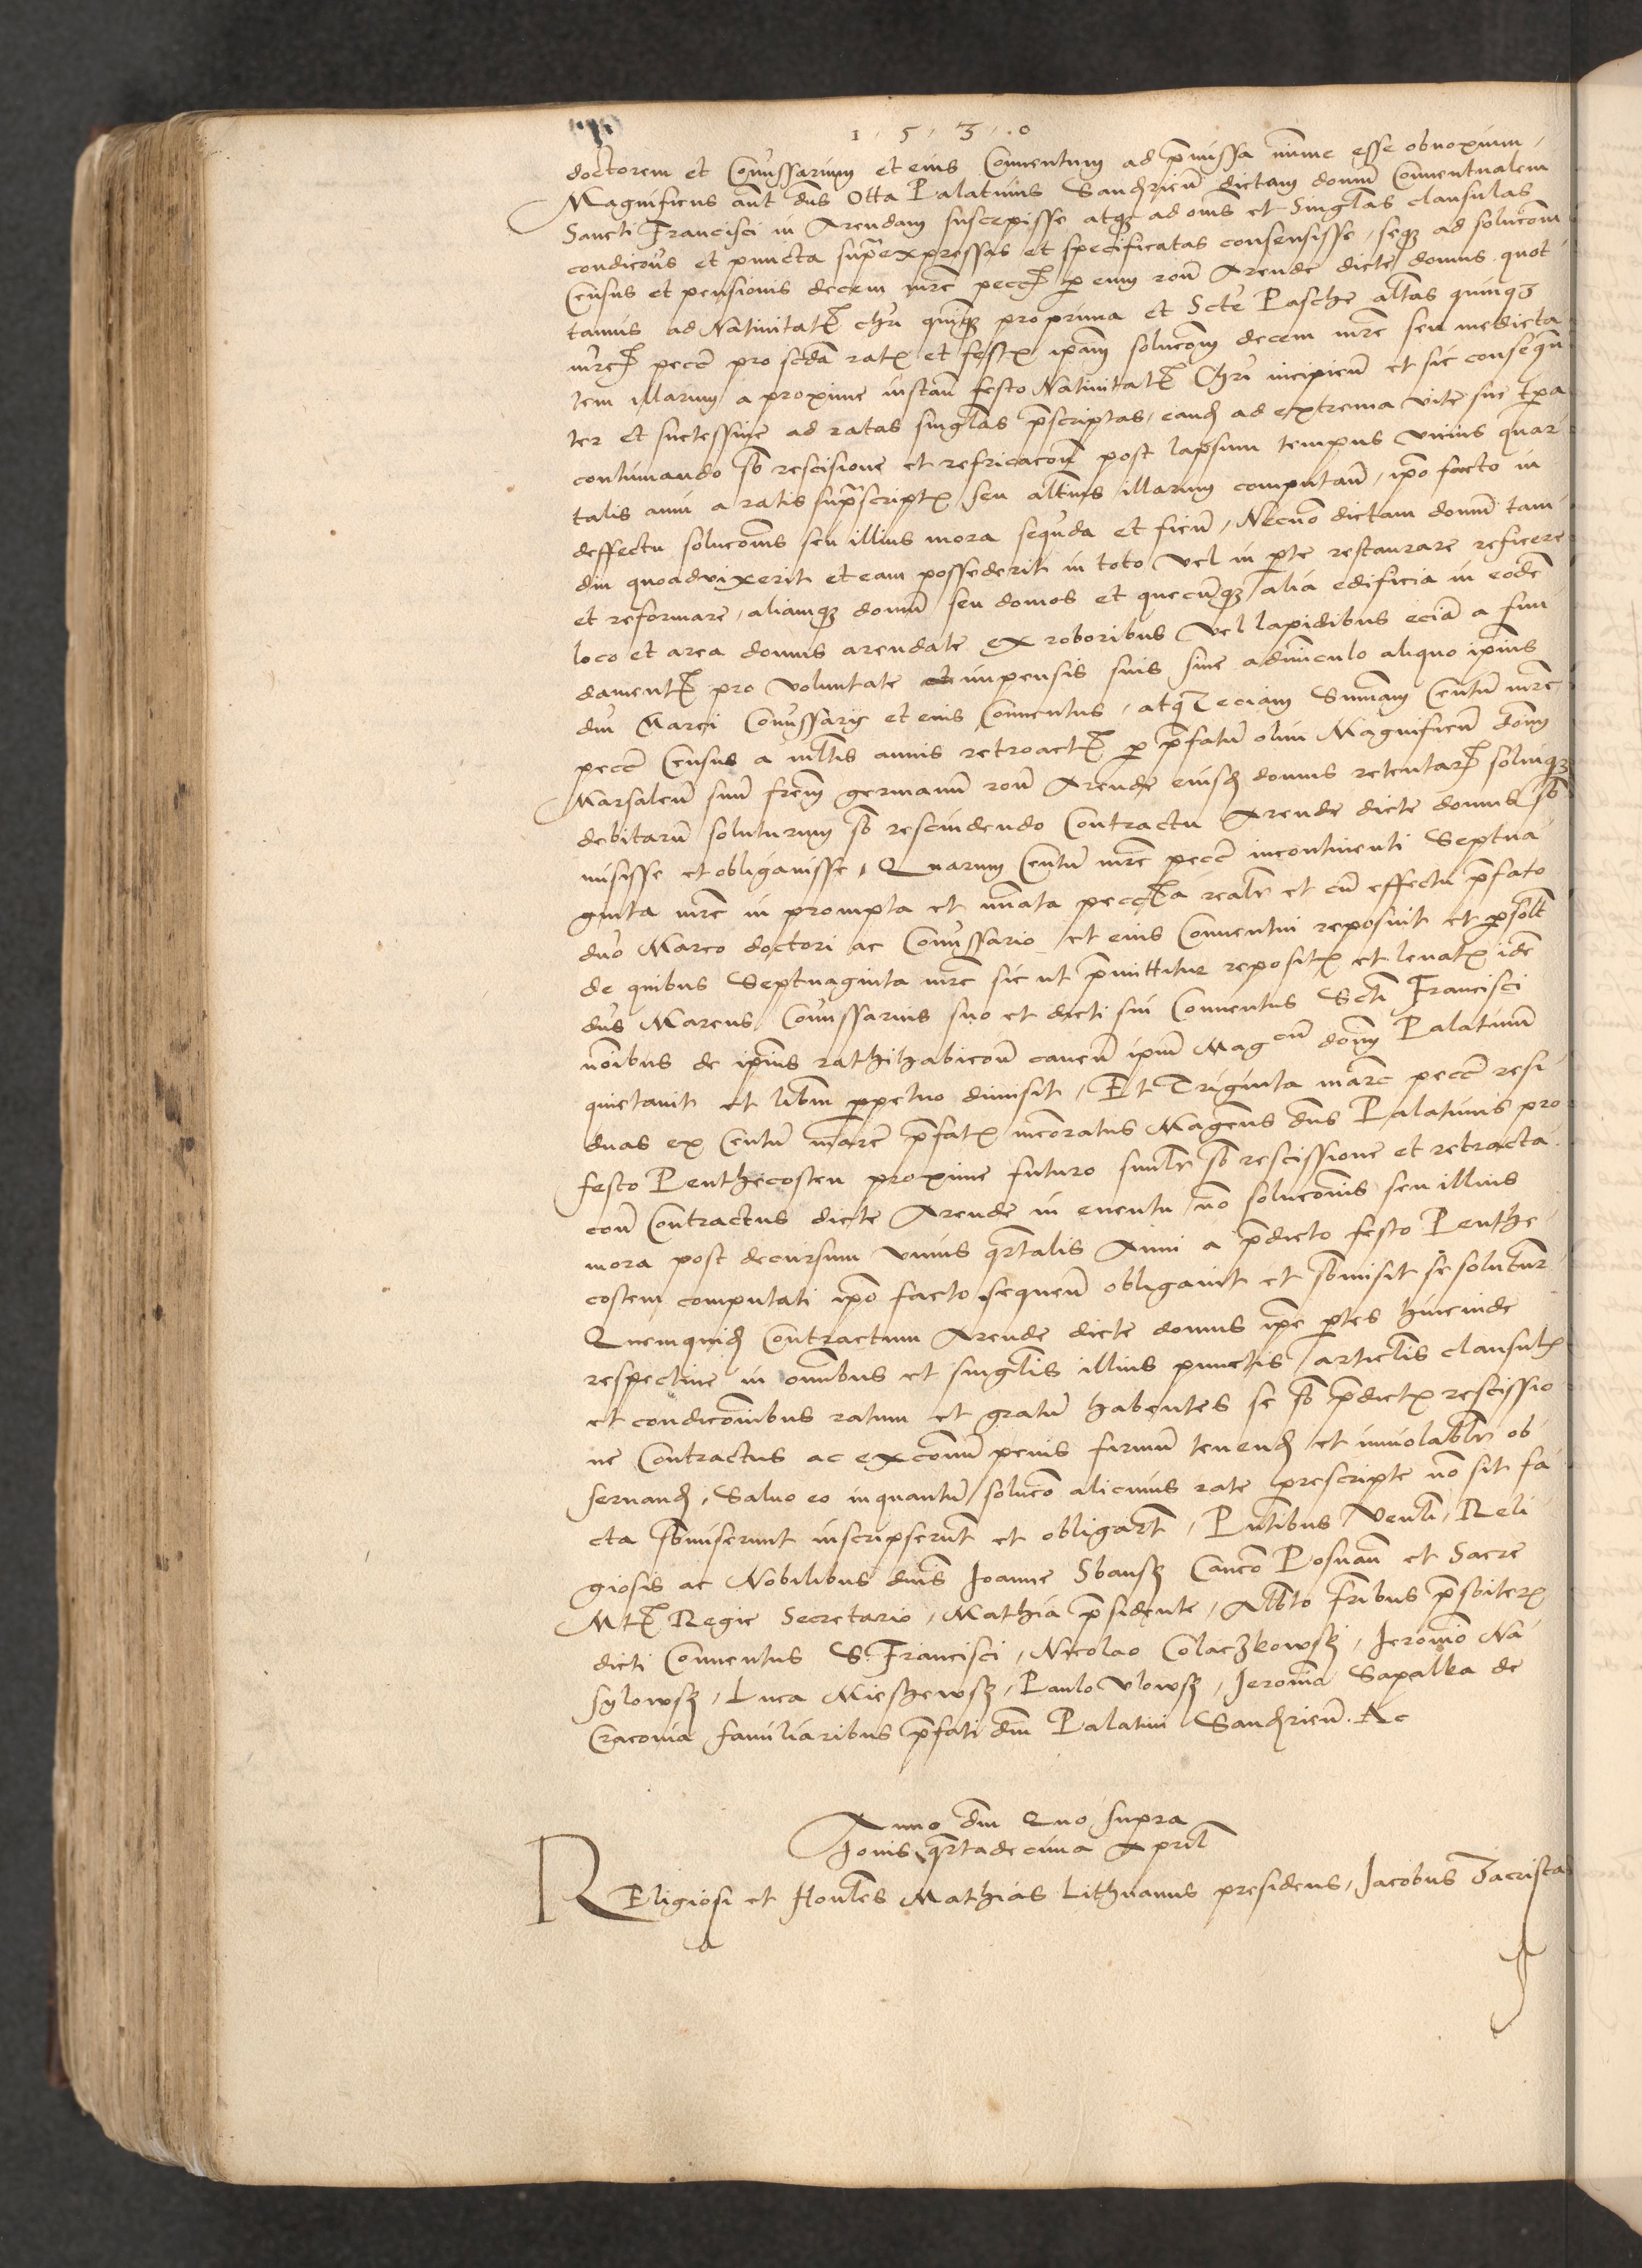 1 · 5 · 3 · 0
doctorem et Comissarium et eius Conventum ad pmissa mime esse obnoxium
Magnificus aut dns Otta Palatinus Sandrien dictam domu Conventualem
Sancti Francisci in Arendam suscepisse atq ad oms et Singlas clausulas
condicões et puncta supraexpressas et specificatas consensisse, seq ad solucom
Census et pensionis decem mrc pecc p eum rone Arende dicte domus quot
tannis ad Nativitat chri quinq pro prima et Scte Pasche altas quinq
mrc pecc pro scda rat et fest ipam solucom decem mrc seu medieta
tem illarum a proxime instan festo Nativitat Chri incipien et sic consequn
ter et successive ad ratas singlas pscriptas, eand ad extrema vite sue tpa
continuando sb rescisione et refricacone post lapsum tempus unius quar
talis anni a ratis suprascript seu altius illarum computan, ipo facto in
deffectu solucois seu illius mora sequda et fien, Necno dictam domu tam
diu quoad vixerit et eam possederit in toto vel in pte restaurare reficere
et reformare, aliamq domu seu domos et quecunq alia edificia in eode
loco et area domus arendate ex roboribus vel lapidibus ecia a fun
dament pro voluntate et impensis suis sine adminculo aliquo ipius
dni Marci Comissarij et eius Conventus, atq eciam Summam Centu mrc
pecc Census a mltis annis retroact p pfatu olim Magnificu dom
Marsaleu suu frem germanu rone Arende eiusd domus retentar solviq
debitaru soluturum sb rescindendo Contractu Arende dicte domus sb
misisse et obligavisse, Quarum Centu mrc pecc incontinenti Septua
ginta mrc in prompta et nuata pecca realr et cu effectu pfato
dno Marco doctori ac Comissario et eius Conventui reposuit et psolt
de quibus Septuaginta mrc sic ut pmittitur reposit et levat ide
dns Marcus Comissarius suo et dicti sui Conventus Scti Francisci
noibus de ipius rathihabicone caven ipm Magcum dom Palatinu
quietavit et libm ppetuo dimisit, Et Triginta marc pecc resi
duas ex Centu marc pfat meoratus Magcus dns Palatinus pro
festo Penthecosten proxime futuro similr sb rescissione et retracta
cone Contractus dicte Arende in eventu no solucois seu illius
mora post decursum unius qrtalis Anni a pdicto festo Penthe
costem computati ipo facto sequen obligavit et sbmisit se soluturu
Quemquid Contractum Arende dicte domus ipe ptes hincinde
respective in omibus et singlis illius punctis articlis clausul
et condicoibus ratum et gratu habentes se sb pdict rescissio
ne Contractus ac excoum penis firmu tenend et inviolablr ob
servand, Salvo eo inquantu soluco alicuius rate prescripte no sit fa
cta sbmiserunt inscripserut et obligart, Pntibus Venli, Reli
giosis ac Nobilibus dnis Joanne Sbansky Canco Posnan et Sacre
Mt Regie Secretario, Mathia psidente, Albto fribus psbiter
dicti Conventus S Francisci, Nicolao Colaczkowski, Jeronimo Na
sylowsky, Luca Mieszewsky, Paulo Ulowsky, Jeronimo Sapalka de
Cracovia familiaribus pfati dni Palatini Sandrien. &c
Anno dni Quo supra
Jovis qrtadecima April
Religiosi et Honles Mathias Lithuanus presidens, Jacobus Sacristas